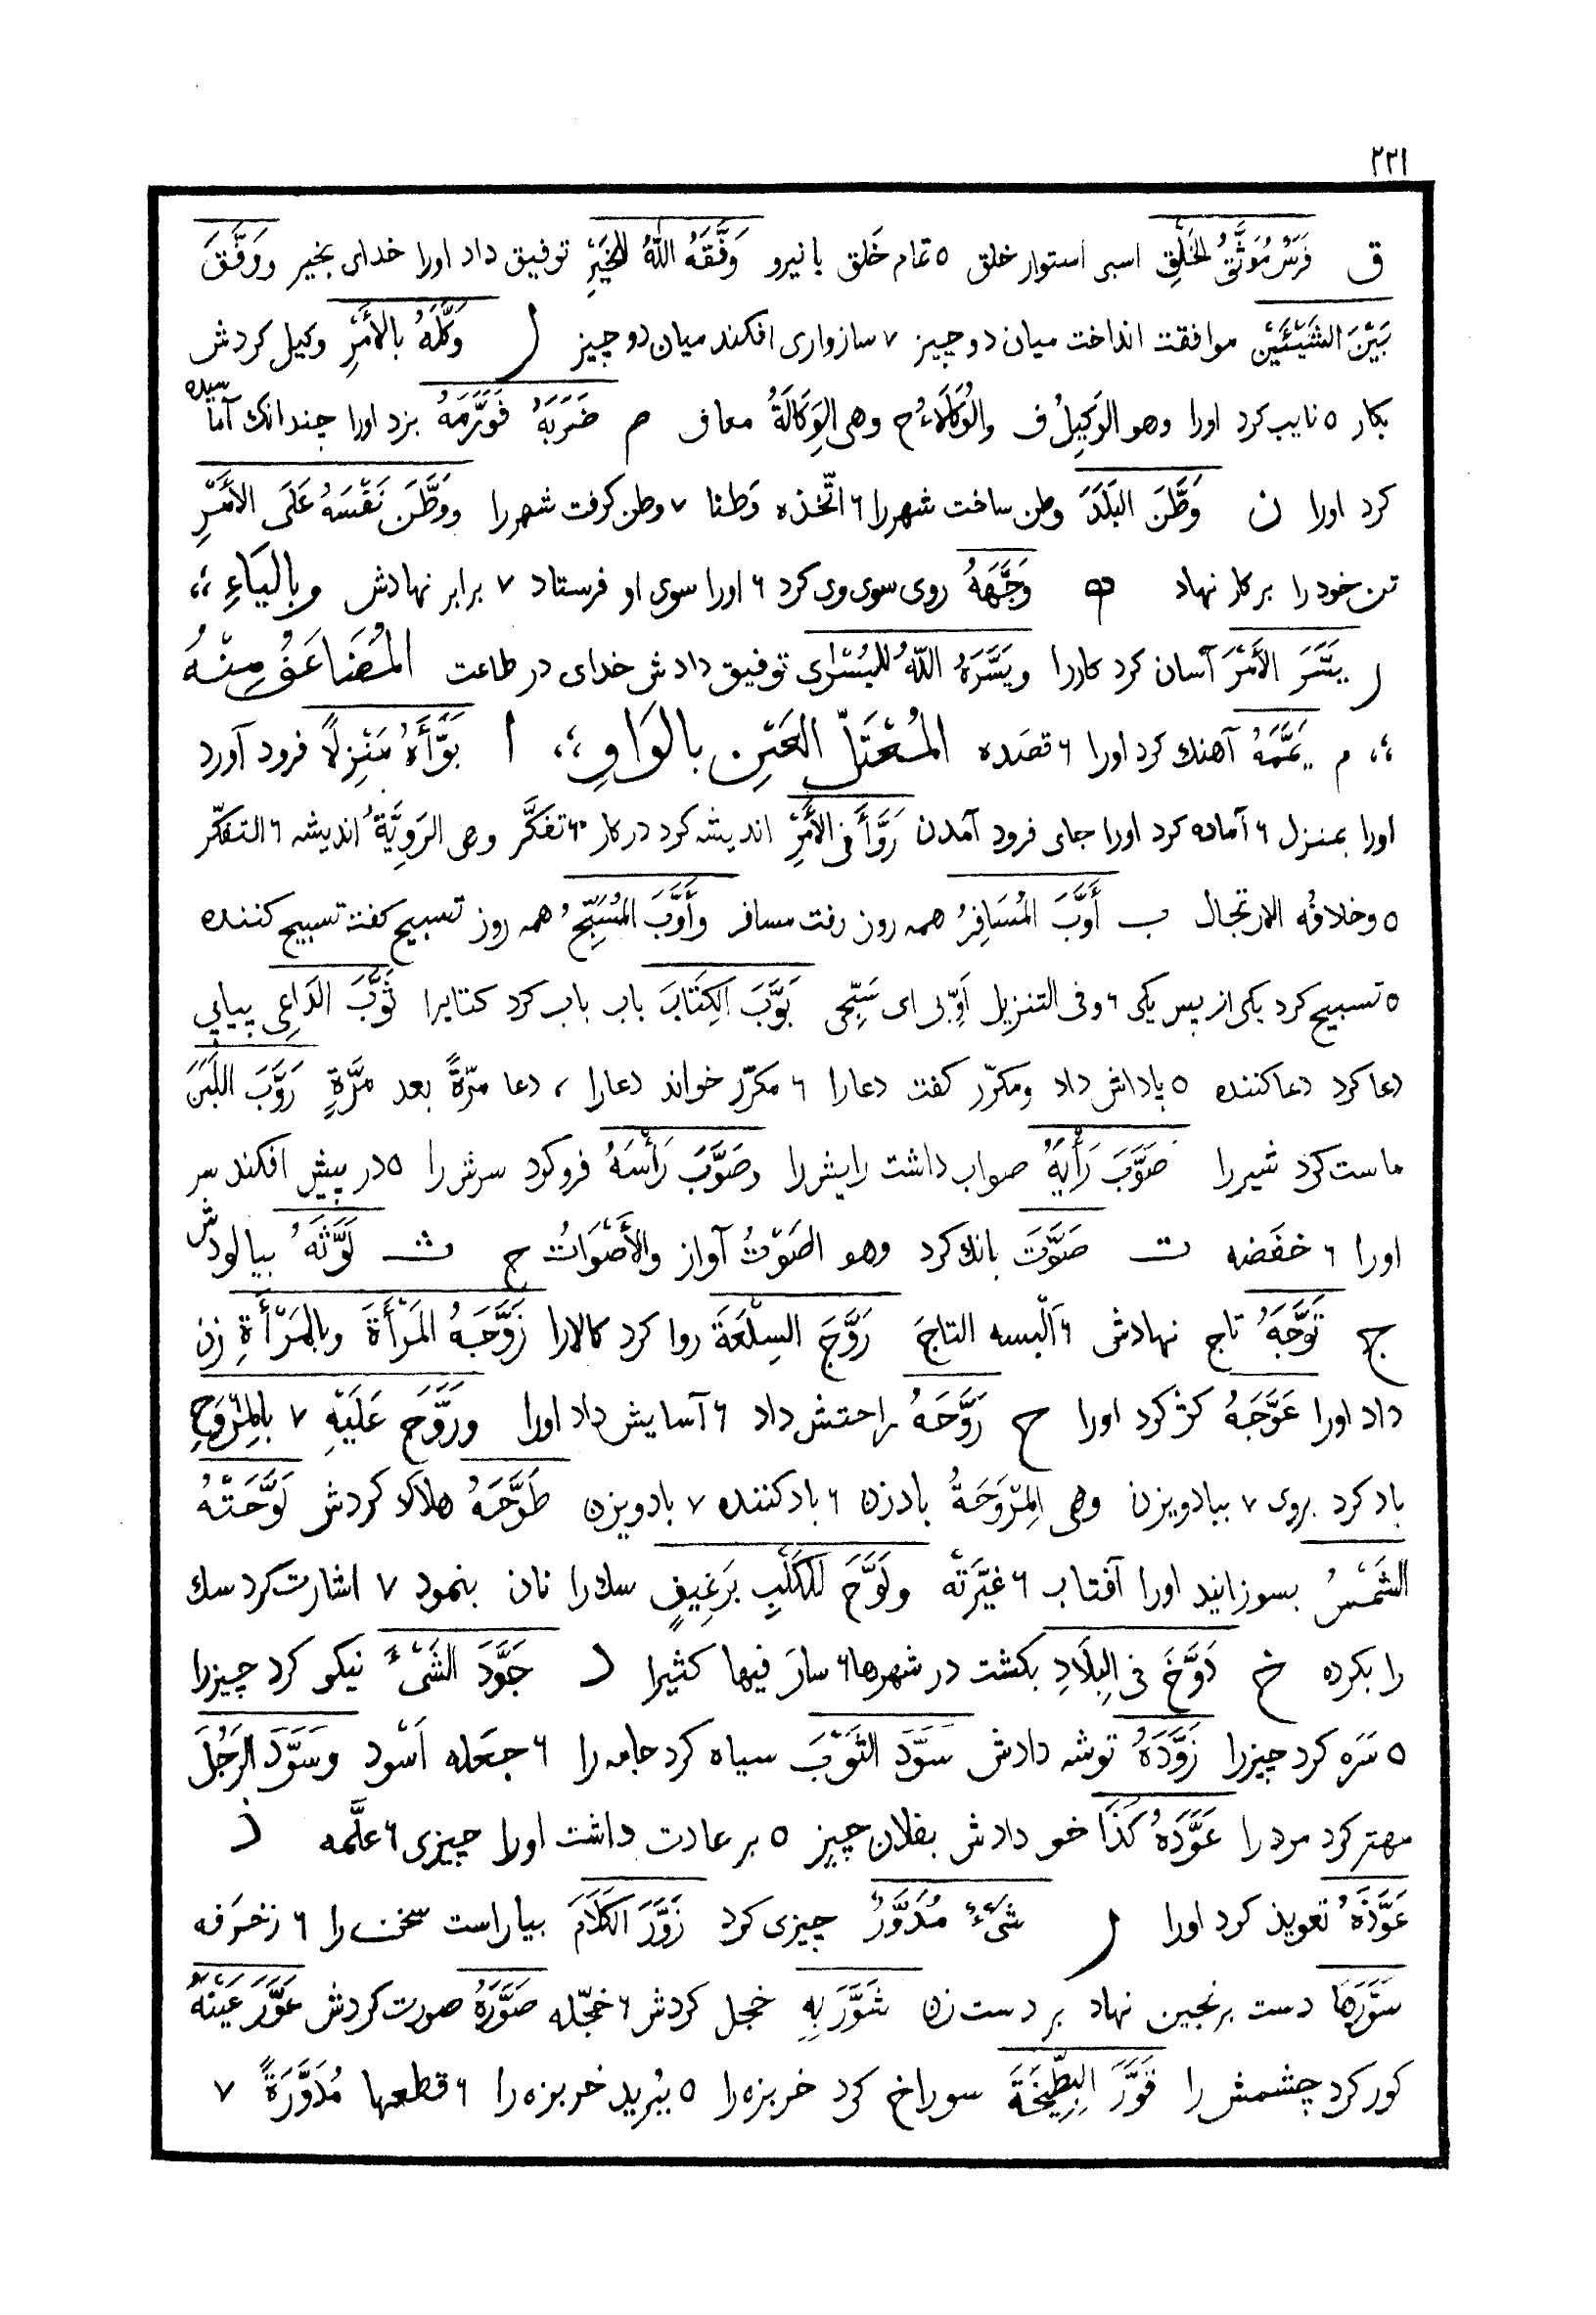 ٢٢١
ق فَرَسٌ مُوَثَّقُ الخَلْقِ اسبی استوار خلق ٥ تمام خَلق با نیرو وَفَّقَهُ اللّٰهُ لِلْخَيْرِ توفیق داد اورا خدای بخیر وَوَفَّقَ
بَيْنَ الشَّيْئَيْنِ موافقت انداخت میان دو چیز ٧ سازواری افکند میان دو چیز ل وَكَّلَهُ بالأَمْرِ وکیل کردش
بکار ٥ نایب کرد اورا وهو الوَكِيلُ ف والوُكَلَاءُ ج وهی الوَكَالَةُ معاف م ضَرَبَهُ فَوَرَّمَهُ بزد اورا چندانك آماسیده
کرد اورا ن وَطَّنَ البَلَدَ وطن ساخت شهررا ٦ اتّخذه وَطنا ٧ وطن کرفت شهررا ووَطَّنَ نَفْسَهُ عَلَى الأَمْرِ
تن خود را بر کار نهاد ه وَجَّهَهُ روی سوی وی کرد ٦ اورا سوی او فرستاد ٧ برابر نهادش وبِاليَاءِ ؛؛
ر يَسَّرَ الأَمْرَ آسان کرد کاررا ويَسَّرَهُ اللّٰهُ لليُسْرَى توفیق دادش خدای در طاعت المُضَاعَفُ مِنْهُ
؛؛ م يَمَّمَهُ آهنك کرد اورا ٦ قصَده المُعْتَلُّ العَيْنِ بالوَاوِ ؛؛ ا بَوَّأَهُ مَنْزِلاً فرود آورد
اورا بمنزل ٦ آماده کرد اورا جای فرود آمدن رَوَّأَ فى الأَمْرِ اندیشه کرد در کار ٦ تفكَّر وهی الرَوِيَّةُ اندیشه ٦ التفكّر
٥ وخلافُه الارتجال ب أَوَّبَ المُسَافِرُ همه روز رفت مسافر وأَوَّبَ المُسَبِّحُ همه روز تسبیح کفت تسبیح کننده
٥ تسبیح کرد یکی از پس یکی ٦ وفی التنزیل اَوِّبِی ای سَبِّحِی بَوَّبَ الكِتَابَ باب باب کرد کتابرا ثَوَّبَ الدَاعِی پیاپی
دعا کرد دعا کننده ٥ پاداش داد ومکرّر کفت دعارا ٦ مکرّر خواند دعارا ، دعا مرّةً بعد مَرَّةٍ رَوَّبَ اللَبَنَ
ماست کرد شیررا صَوَّبَ رَأْيَهُ صواب داشت رایش را وصَوَّبَ رَأْسَهُ فرو کرد سرش را ٥ در پیش افکند سر
اورا ٦ خفَضه ت صَوَّتَ بانك کرد وهو الصَوْتُ آواز والأَصْوَاتُ ج ث لَوَّثَهُ بیالودش
ج تَوَّجَهُ تاج نهادش ٦ اَلْبسه التاجَ رَوَّجَ السِلْعَةَ روا کرد کالارا زَوَّجَهُ المَرْأَةَ وبالمَرْأَةِ زن
داد اورا عَوَّجَهُ کژ کرد اورا ح رَوَّحَهُ راحتش داد ٦ آسایش داد اورا ورَوَّحَ عَلَيْهِ ٧ بالمِرْوَحَةِ
باد کرد بروی ٧ ببادویزن وهی المِرْوَحَةُ بادزن ٦ باد کننده ٧ بادویزن طَوَّحَهُ هلاك کردش لَوَّحَتْهُ
الشَمْسُ بسوزانید اورا آفتاب ٦ غيّرَتْه ولَوَّحَ للكَلْبِ بَرَغِيفٍ سك را نان بنمود ٧ اشارت کرد سك
را بکرده خ دَوَّخَ فى البِلَادِ بکشت در شهرها ٦ سارَ فیها کثیرا د جَوَّدَ الشَىْءَ نیکو کرد چیزرا
٥ سَره کرد چیزرا زَوَّدَهُ توشه دادش سَوَّدَ الثَوْبَ سیاه کرد جامه را ٦ جعَله اَسْود وسَوَّدَ الرَجُلَ
مهتر کرد مرد را عَوَّدَهُ كَذَا خو دادش بفلان چیز ٥ بر عادت داشت اورا چیزی ٦ علَّمه ذ
عَوَّذَهُ تعویذ کرد اورا ر شَیْءٌ مُدَوَّرٌ چیزی کرد زَوَّرَ الكَلَامَ بیاراست سخن را ٦ زخرَفه
سَوَّرَهَا دست برنجین نهاد بر دست زن شَوَّرَ بِهِ خجل کردش ٦ خجّله صَوَّرَهُ صورت کردش عَوَّرَ عَيْنَهُ
کور کرد چشمش را قَوَّرَ البِطِّيخَةَ سوراخ کرد خربزه را ٥ ببُرید خربزه را ٦ قطعها مُدَوَّرَةً ٧